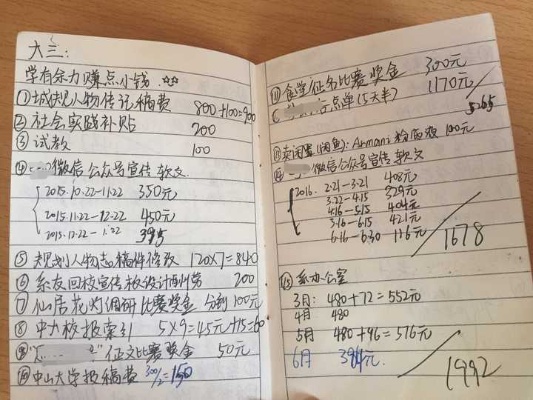 大三:
学有余力赚点小钱 ☆☆
①城规人物传记稿费 800+100=900
②社会实践补贴 200
③试教 100
微信公众号宣传软文
2015.10.22-11.22 350元
2015.11.22-12.22 450元
2015.12.22-1.22 395
⑤规划人物志稿件修改 120×7=840
⑥系友回校宣传板设计 200
⑦仙居花灯调研比赛奖金 分到100元
⑧中大校报索引 5×9=45元+15=60
征文比赛奖金 50元
⑩中山大学报稿费 300/2=150
⑪食学征名比赛奖金 300元
点单(5天半) 1170元
5265
卖闲置(闲鱼):Armani粉底液 100元
微信公众号宣传软文
2016. 2.21-3.21 408元
3.22-4.15 329元
4.16-5.15 404元
5.16-6.15 421元
6.16-6.30 116元
1678
系办公室
3月: 480+72=552元
4月 480
5月 480+96=576元
6月 384元
1992